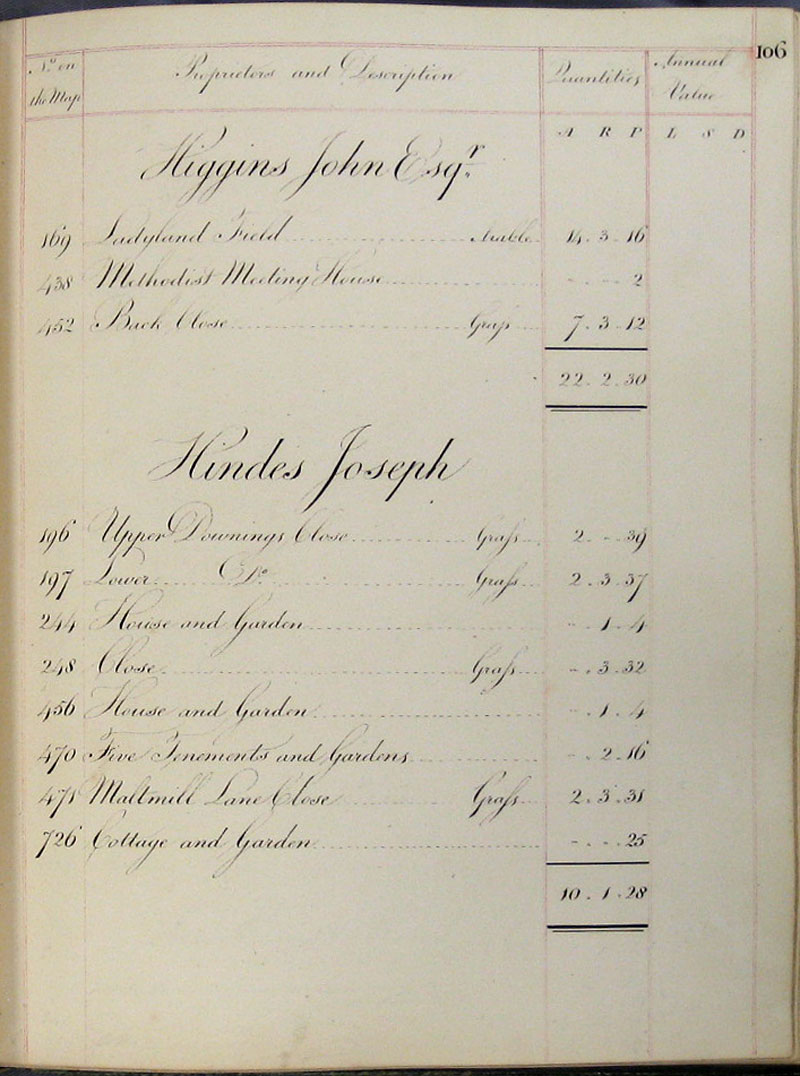 106
No. on the Map Proprietors and Description Quantities Annual Value
A R P L S D
Higgins John Esqr.
169 Ladyland Field Arable 14 . 3 . 16
438 Methodist Meeting House - - 2
452 Back Close Grass 7 . 3 . 12
22 . 2 . 30
Hindes Joseph
196 Upper Downings Close Grass 2 . - . 39
197 Lower Do. Grass 2 . 3 . 37
244 House and Garden - . 1 . 4
248 Close Grass - . 3 . 32
456 House and Garden - . 1 . 4
470 Five Tenements and Gardens - . 2 . 16
471 Maltmill Lane Close Grass 2 . 3 . 31
726 Cottage and Garden - . - . 25
10 . 1 . 28